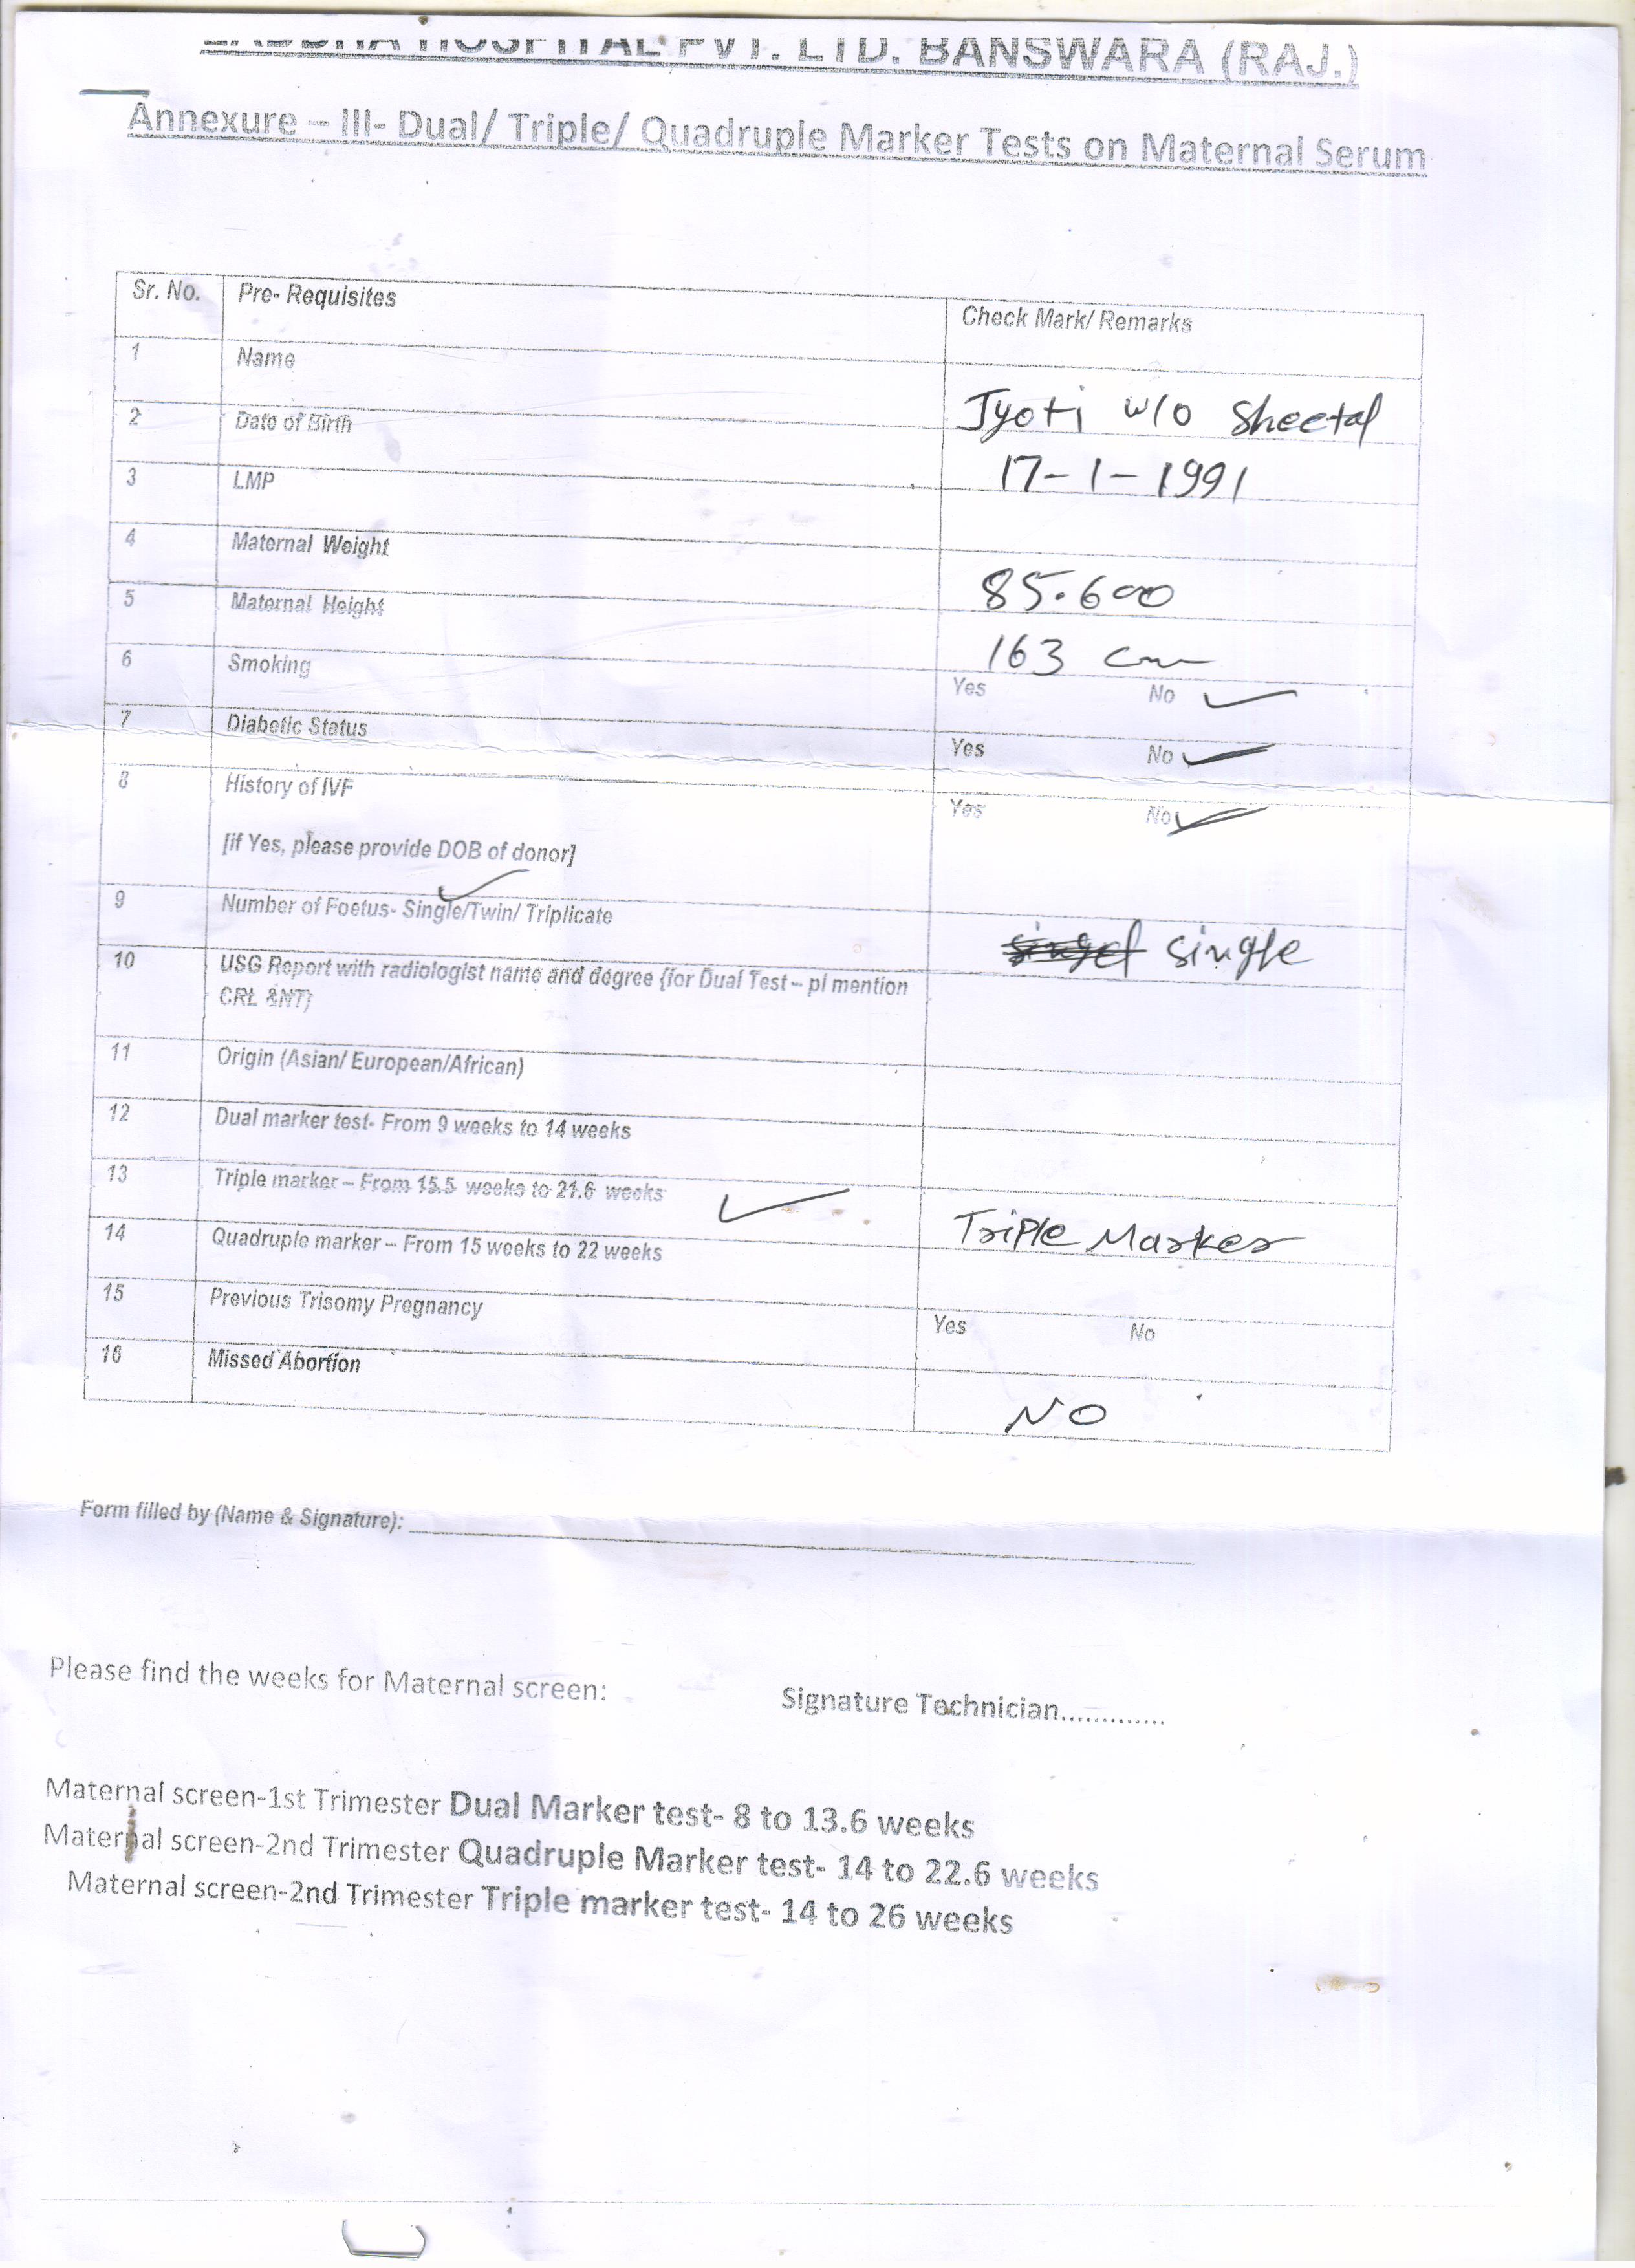 HOSPITAL PVT. LTD. BANSWARA (RAJ.)
Annexure – III- Dual/ Triple/ Quadruple Marker Tests on Maternal Serum
Sr. No. Pre- Requisites Check Mark/ Remarks
1 Name Jyoti w/o Sheetal
2 Date of Birth 17-1-1991
3 LMP
4 Maternal Weight 85.600
5 Maternal Height 163 cm
6 Smoking Yes No ✓
7 Diabetic Status Yes No ✓
8 History of IVF Yes No ✓
[if Yes, please provide DOB of donor]
9 Number of Foetus- Single/Twin/ Triplicate ✓ single
10 USG Report with radiologist name and degree {for Dual Test – pl mention
CRL &NT}
11 Origin (Asian/ European/African)
12 Dual marker test- From 9 weeks to 14 weeks
13 Triple marker – From 15.5 weeks to 21.6 weeks ✓ Triple Marker
14 Quadruple marker – From 15 weeks to 22 weeks
15 Previous Trisomy Pregnancy Yes No
16 Missed Abortion NO
Form filled by (Name & Signature):
Please find the weeks for Maternal screen: Signature Technician.............
Maternal screen-1st Trimester Dual Marker test- 8 to 13.6 weeks
Maternal screen-2nd Trimester Quadruple Marker test- 14 to 22.6 weeks
Maternal screen-2nd Trimester Triple marker test- 14 to 26 weeks